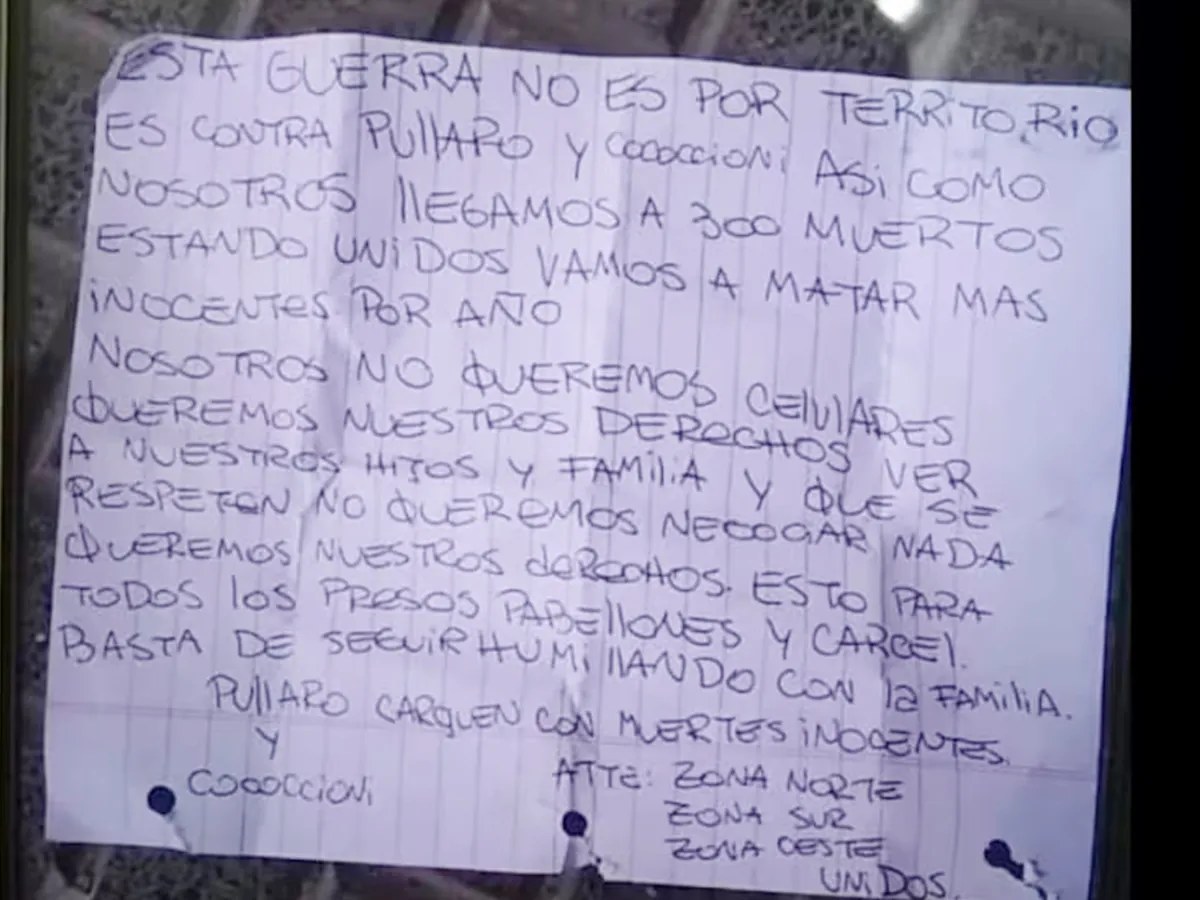 ESTA GUERRA NO ES POR TERRITORIO
ES CONTRA PUllARO Y COCOCCIONi ASi COMO
NOSOTROS llEGAMOS A 300 MUERTOS
ESTANDO UNiDOS VAMOS A MATAR MAS
iNOCENTES POR AÑO
NOSOTROS NO QUEREMOS CElUlARES
QUEREMOS NUESTROS DERECHOS VER
A NUESTROS HIJOS Y FAMiliA Y QUE SE
RESPETEN NO QUEREMOS NECOGAR NADA
QUEREMOS NUESTROS deRECHOS. ESTO PARA
TODOS los PRESOS PABEllONES Y CARCEl.
BASTA DE SEGUIR HUMillANDO CON la FAMiliA.
PUllARO CARGUEN CON MUERTES iNOCENTES.
Y
COCOCCIONi
ATTE: ZONA NORTE
ZONA SUR
ZONA OESTE
UNiDOS.